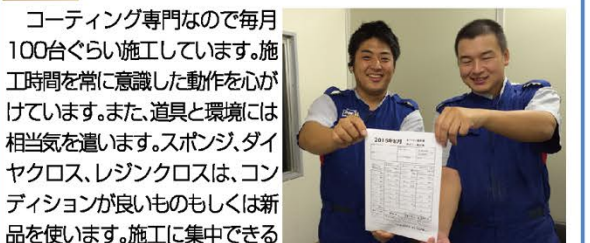 コーティング専門なので毎月
100台ぐらい施工しています。施
工時間を常に意識した動作を心が
けています。また、道具と環境には
相当気を遣います。スポンジ、ダイ
ヤクロス、レジンクロスは、コン
ディションが良いものもしくは新
品を使います。施工に集中できる